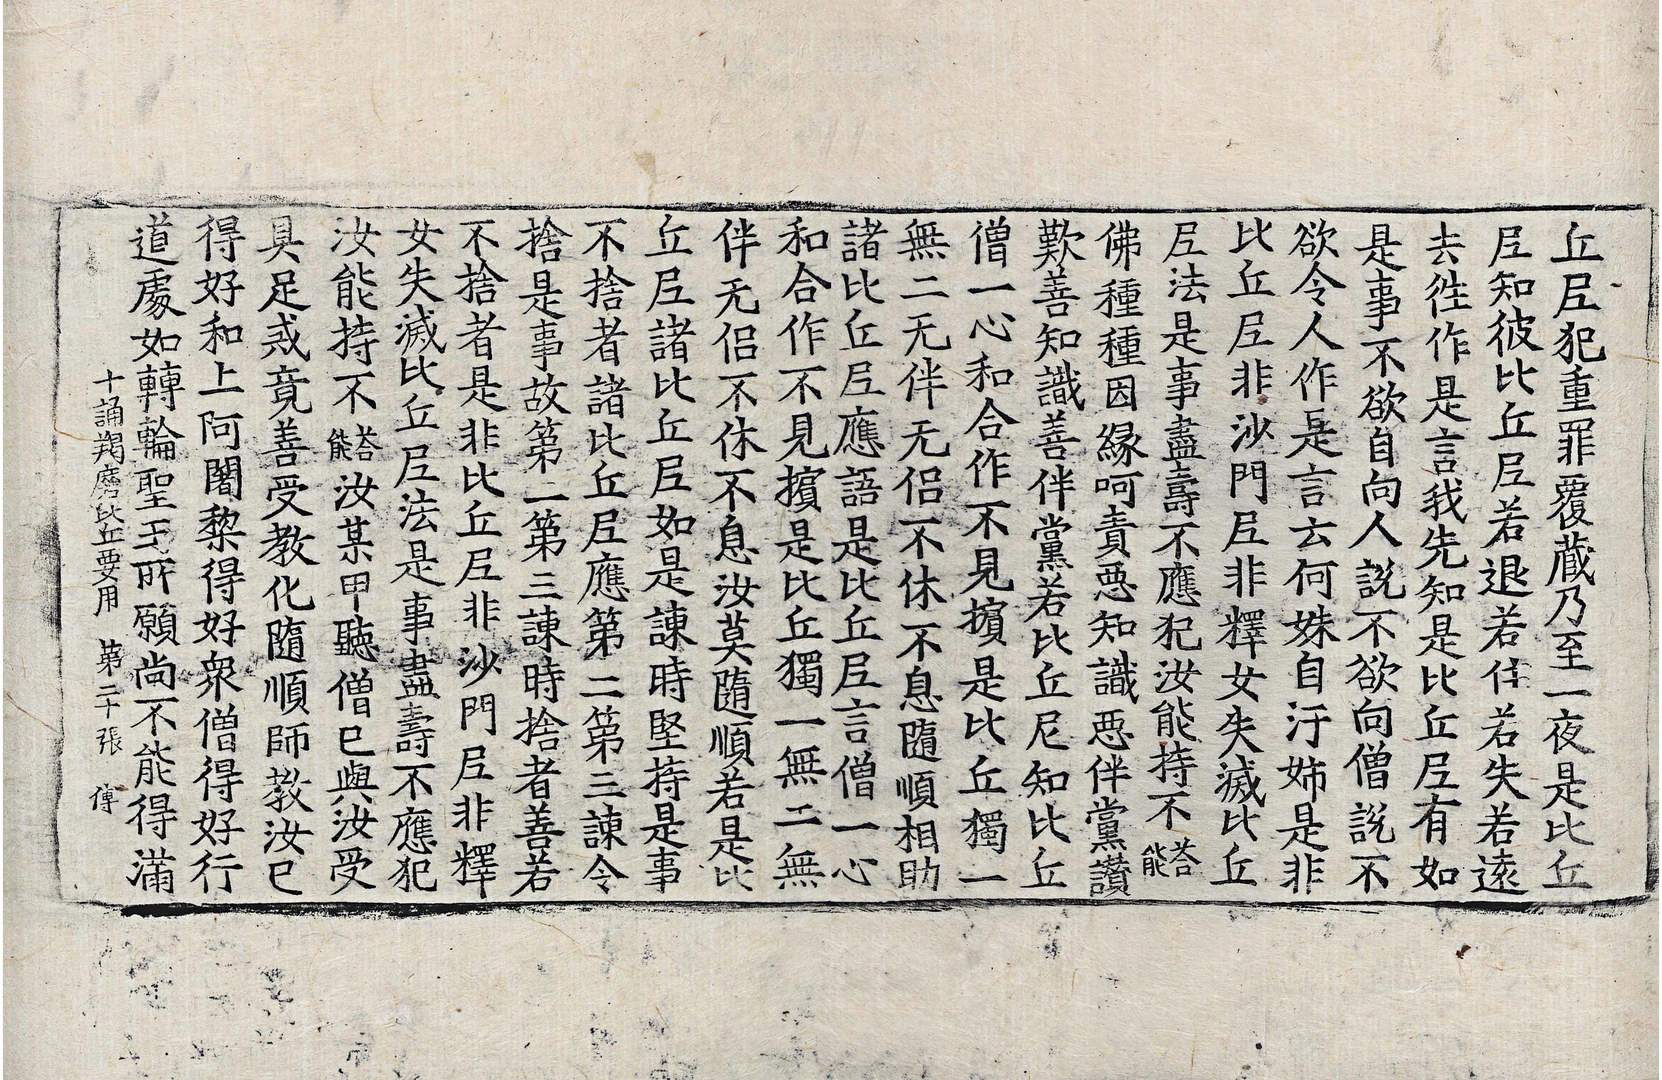 丘𡰱犯重罪覆蔵乃至一夜是比丘
𡰱知彼比丘𡰱若退若住若失若遠
去後作是言我先知是比丘𡰱有如
是事不欲自向人說不欲向僧說不
欲令人作是言云何姊自汙姊是非
比丘𡰱非沙門𡰱非釋女失滅比丘
𡰱法是事盡壽不應犯汝能持不荅能
佛種種因緣呵責惡知識惡伴黨讃
歎善知識善伴黨若比丘尼知比丘
僧一心和合作不見擯是比丘獨一
無二无伴无侶不休不息隨順相助
諸比丘𡰱應語是比丘𡰱言僧一心
和合作不見擯是比丘獨一無二無
伴无侶不休不息汝莫隨順若是比
丘𡰱諸比丘𡰱如是諫時堅持是事
不捨者諸比丘𡰱應第二第三諫令
捨是事故第二第三諫時捨者善若
不捨者是非比丘𡰱非沙門𡰱非釋
女失滅比丘𡰱法是事盡壽不應犯
汝能持不荅能汝某甲聽僧已與汝受
具足戒竟善受教化隨順師教汝已
得好和上阿闍黎得好衆僧得好行
道處如轉輪聖王所願尚不能得滿
十誦羯磨比丘要用 第二十張 傳